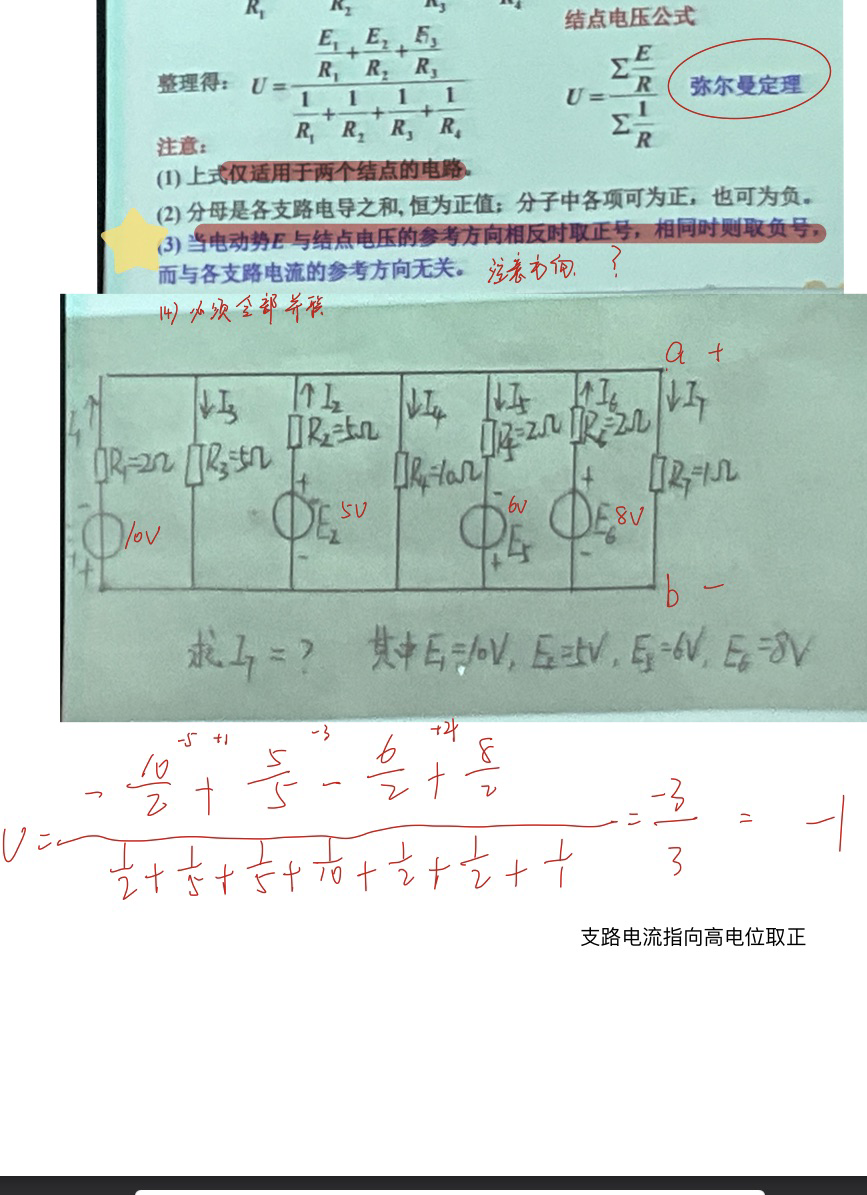 R₁ R₂ R₃ R₄
结点电压公式
整理得: U = (E₁/R₁ + E₂/R₂ + E₃/R₃) / (1/R₁ + 1/R₂ + 1/R₃ + 1/R₄)
U = (Σ E/R) / (Σ 1/R)
弥尔曼定理
注意:
(1) 上式仅适用于两个结点的电路。
(2) 分母是各支路电导之和, 恒为正值; 分子中各项可为正, 也可为负。
(3) 当电动势E 与结点电压的参考方向相反时取正号, 相同时则取负号,
而与各支路电流的参考方向无关。 注意方向 ?
(4) 必须全部并联
a +
I₁ ↓I₃ ↑I₂ ↓I₄ ↓I₅ ↑I₆ ↓I₇
R₁=2Ω R₃=5Ω R₂=5Ω R₄=10Ω R₅=2Ω R₆=2Ω R₇=1Ω
- + - +
10V E₂ 5V 6V E₅ E₆ 8V
+ - + -
b -
求 I₇ = ? 其中 E₁=10V, E₂=5V, E₅=6V, E₆=8V
-5 +1 -3 +4
U = (- 10/2 + 5/5 - 6/2 + 8/2) / (1/2 + 1/5 + 1/5 + 1/10 + 1/2 + 1/2 + 1/1) = -3/3 = -1
支路电流指向高电位取正